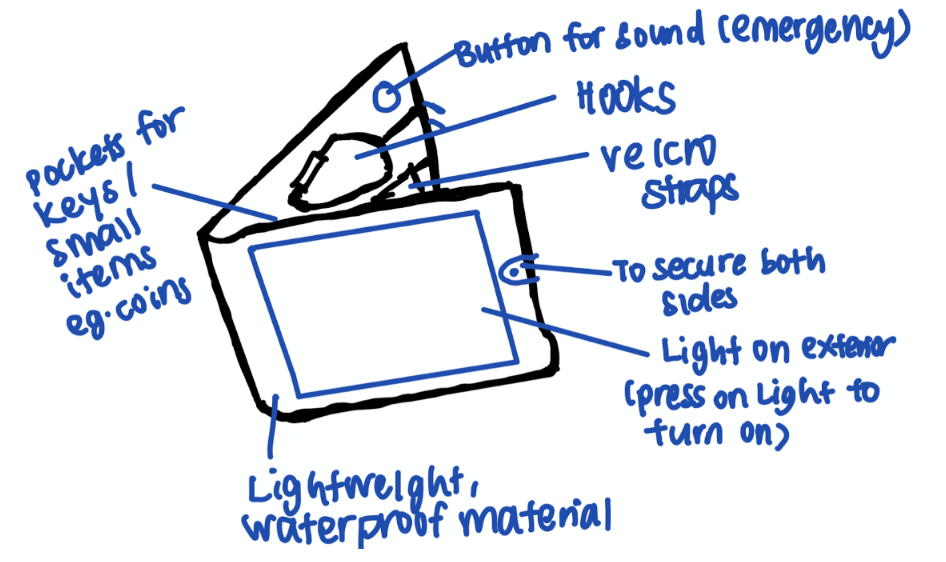 Button for sound (emergency)
Hooks
velcro
straps
pockets for
keys/
small
items
eg. coins
To secure both
sides
Light on exterior
(press on Light to
turn on)
Lightweight,
waterproof material